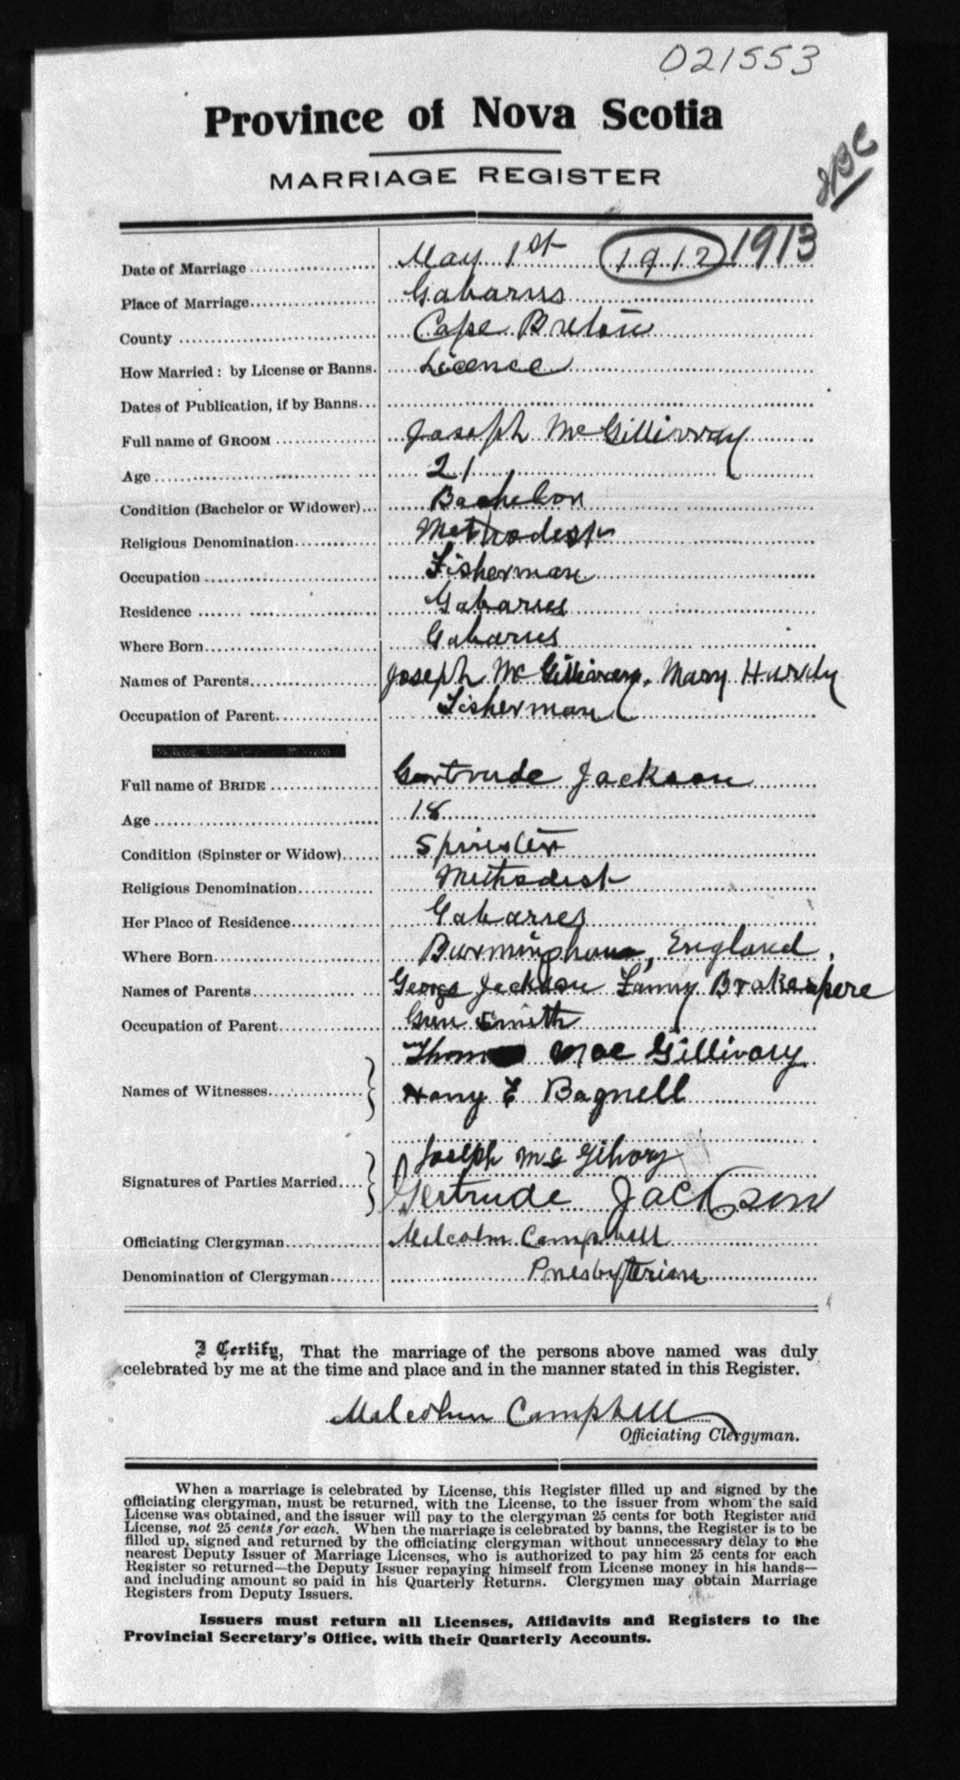 021553
Province of Nova Scotia
MARRIAGE REGISTER
Date of Marriage May 1st 1912 1913
Place of Marriage Gabarus
County Cape Breton
How Married: by License or Banns. Licence
Dates of Publication, if by Banns
Full name of GROOM Joseph McGillivray
Age 21
Condition (Bachelor or Widower) Bachelor
Religious Denomination Methodist
Occupation Fisherman
Residence Gabarus
Where Born Gabarus
Names of Parents Joseph McGillivery. Mary Hurdy
Occupation of Parent Fisherman
Full name of BRIDE Gertrude Jackson
Age 18
Condition (Spinster or Widow) Spinster
Religious Denomination Methodist
Her Place of Residence Gabarus
Where Born Burmingham, England.
Names of Parents George Jackson Fanny Brakespere
Occupation of Parent Gun smith
Mac Gillivary
Names of Witnesses Harry F Bagnell
Joseph Mc Gilvary
Signatures of Parties Married Gertrude Jackson
Officiating Clergyman Malcolm Campbell
Denomination of Clergyman Presbyterian
I Certify, That the marriage of the persons above named was duly
celebrated by me at the time and place and in the manner stated in this Register.
Malcolm Campbell
Officiating Clergyman.
When a marriage is celebrated by License, this Register filled up and signed by the
officiating clergyman, must be returned, with the License, to the issuer from whom the said
License was obtained, and the issuer will pay to the clergyman 25 cents for both Register and
License, not 25 cents for each. When the marriage is celebrated by banns, the Register is to be
filled up, signed and returned by the officiating clergyman without unnecessary delay to the
nearest Deputy Issuer of Marriage Licenses, who is authorized to pay him 25 cents for each
Register so returned—the Deputy Issuer repaying himself from License money in his hands—
and including amount so paid in his Quarterly Returns. Clergymen may obtain Marriage
Registers from Deputy Issuers.
Issuers must return all Licenses, Affidavits and Registers to the
Provincial Secretary's Office, with their Quarterly Accounts.